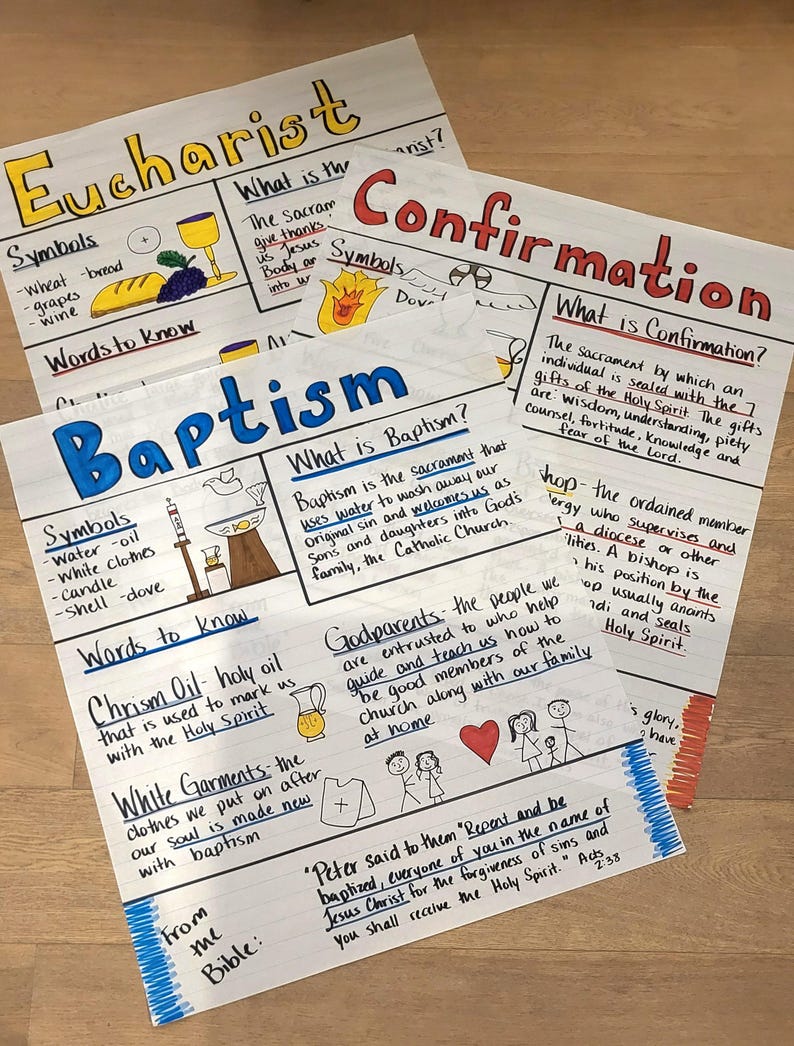 Eucharist
Symbols
-wheat -bread
-grapes
-wine
Words to Know
What is the
The Sacram
give thanks
us Jesus
Body ar
into w
Confirmation
Symbols
Dov
What is Confirmation?
The sacrament by which an
individual is sealed with the 7
gifts of the Holy Spirit. The gifts
are: wisdom, understanding, piety
counsel, fortitude, knowledge and
fear of the Lord.
shop - the ordained member
ergy who supervises and
a diocese or other
ilities. A bishop is
his position by the
op usually anoints
ndi and seals
Holy Spirit.
's glory,
have
Baptism
Symbols
-water -oil
-white clothes
-candle
-shell -dove
What is Baptism?
Baptism is the sacrament that
uses water to wash away our
original sin and welcomes us as
sons and daughters into God's
family, the Catholic Church
Words to Know
Chrism Oil - holy oil
that is used to mark us
with the Holy Spirit
White Garments - the
clothes we put on after
our soul is made new
with baptism
Godparents - the people we
are entrusted to who help
guide and teach us how to
be good members of the
church along with our family
at home
From
the
Bible:
"Peter said to them "Repent and be
baptized, everyone of you in the name of
Jesus Christ for the forgiveness of sins and
you shall receive the Holy Spirit." Acts
2:38